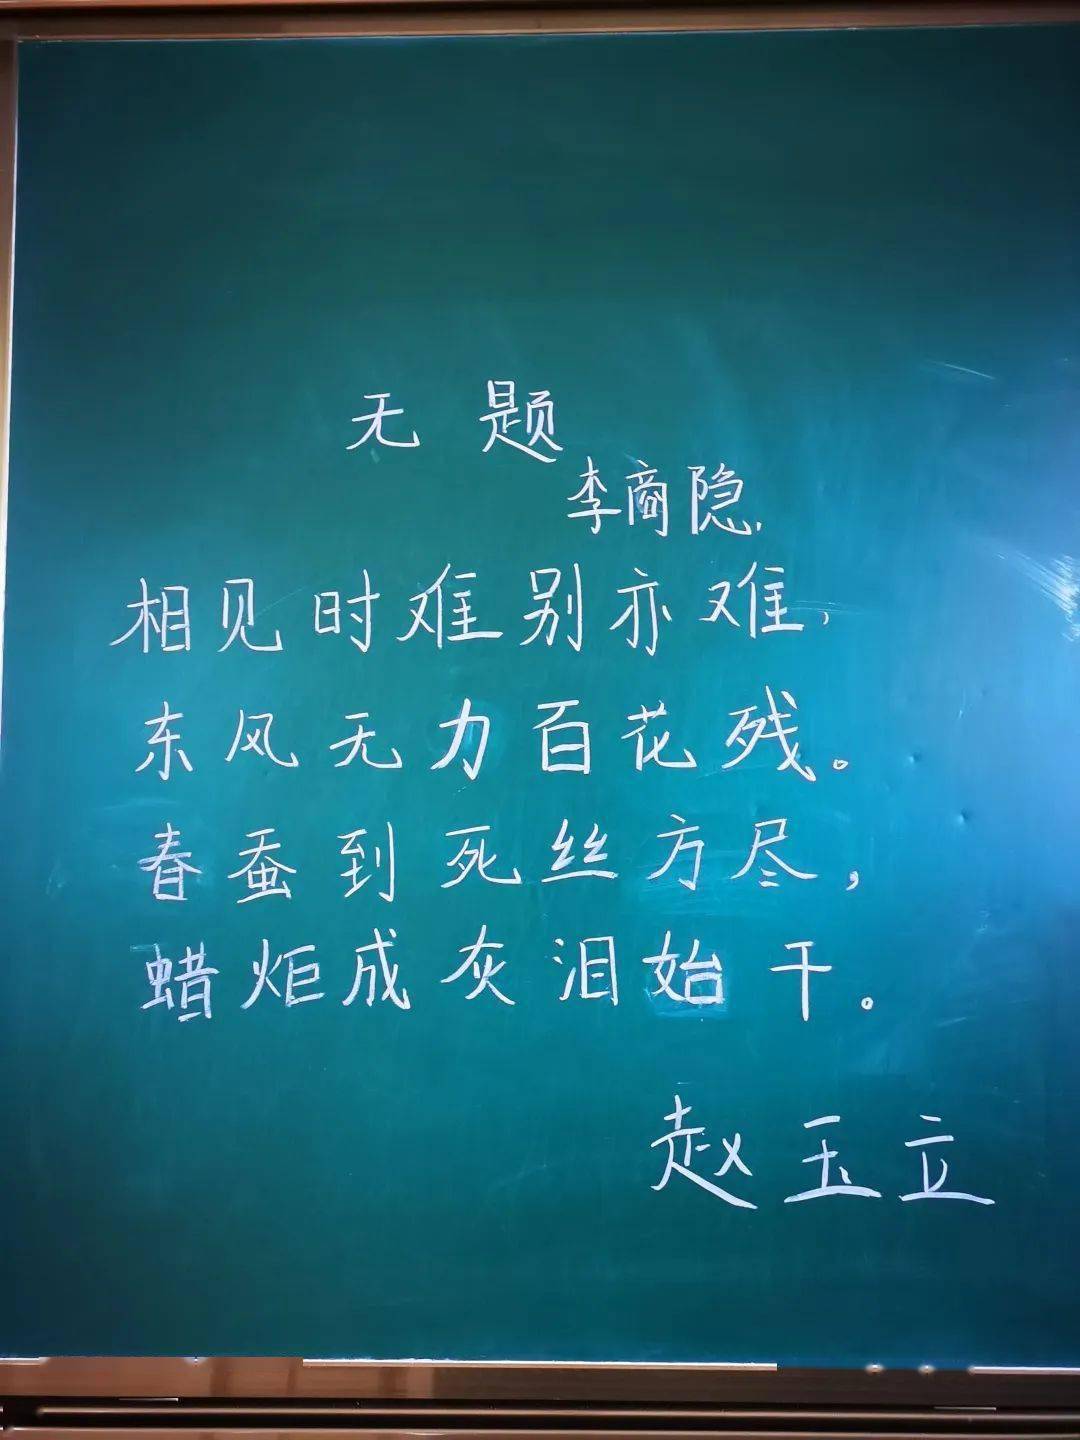 无题
李商隐
相见时难别亦难，
东风无力百花残。
春蚕到死丝方尽，
蜡炬成灰泪始干。
赵玉立